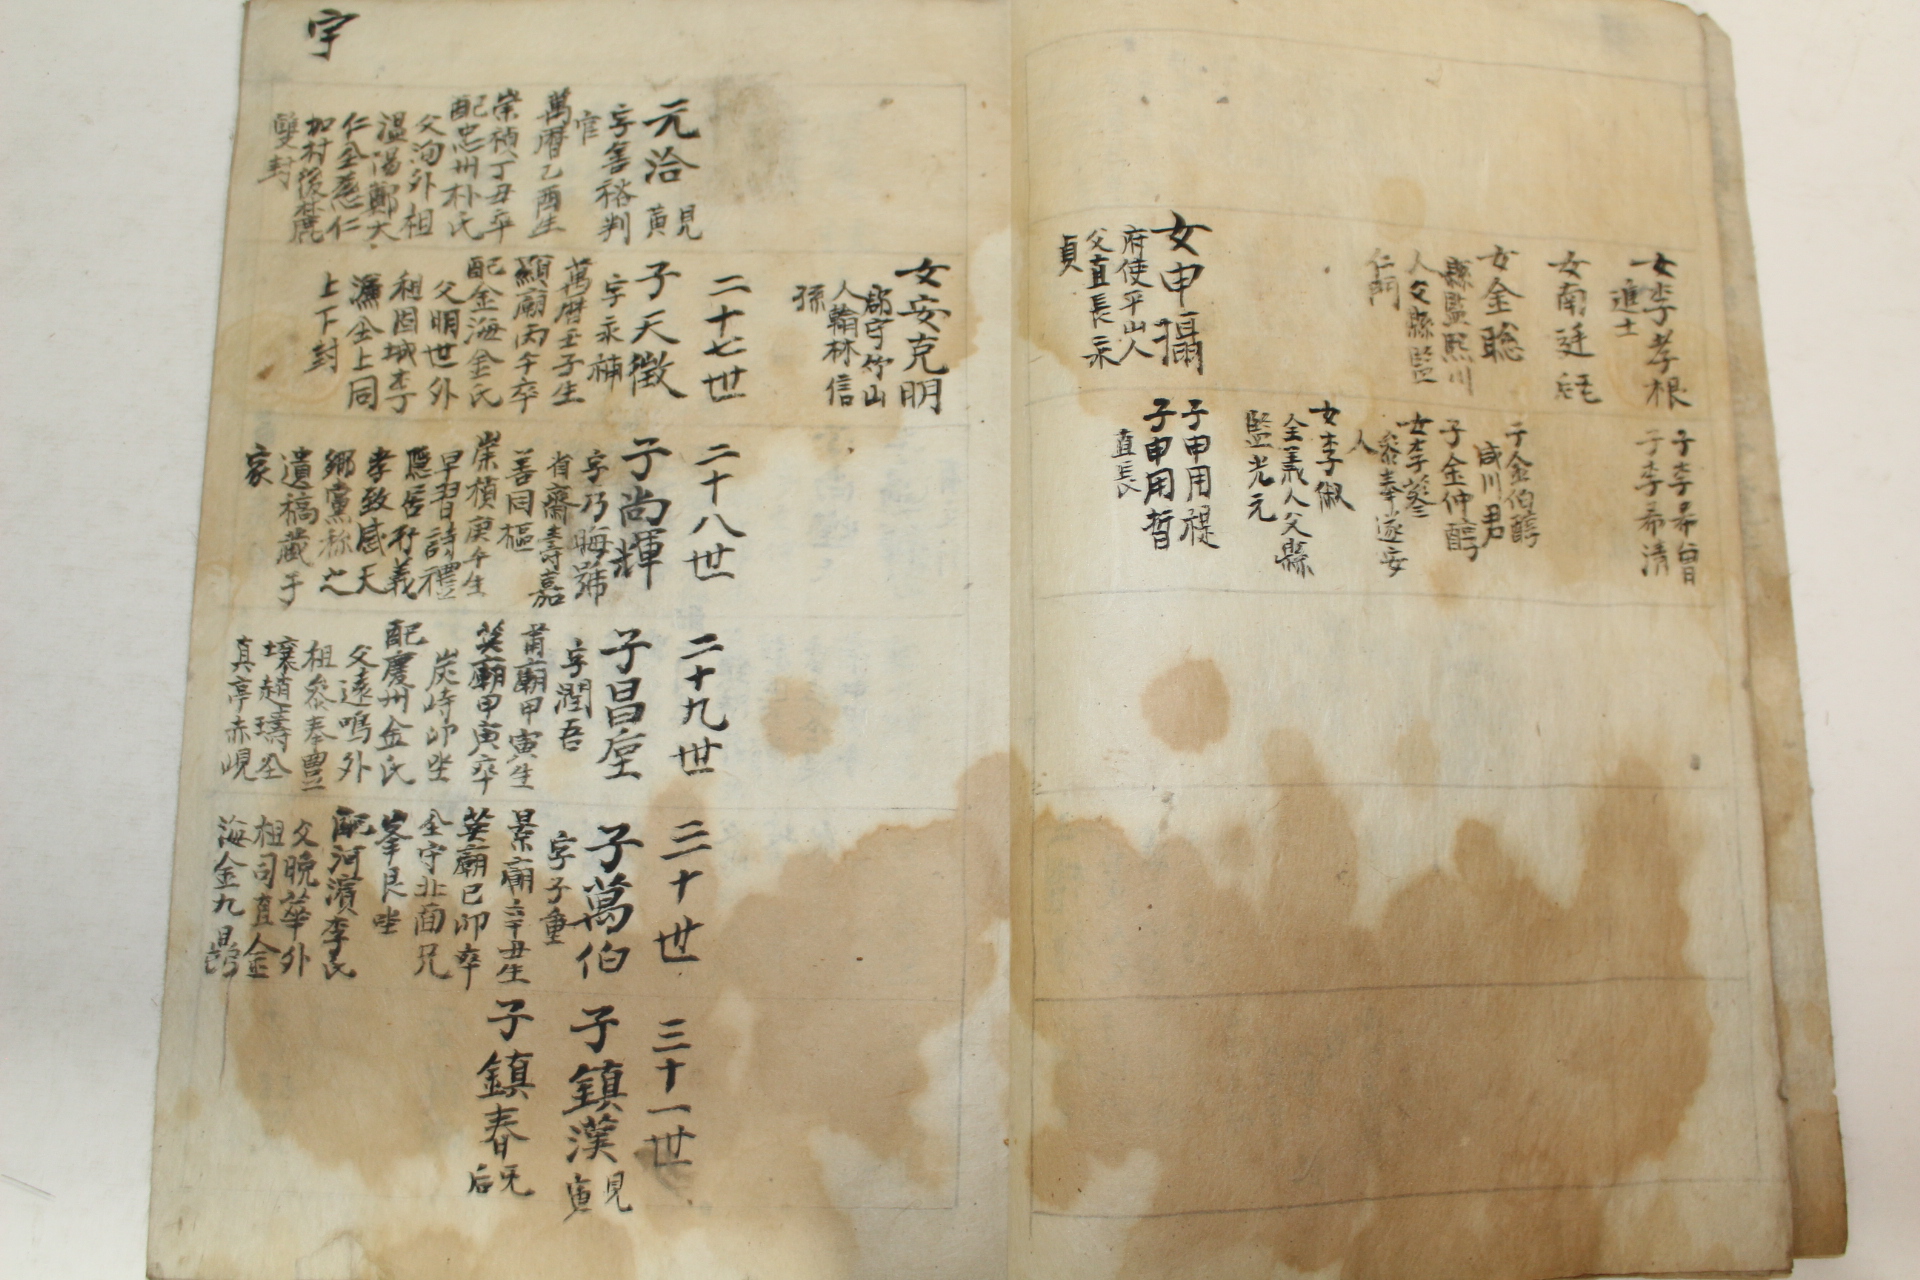 女李孝根
進士
女南廷
女金聡
縣監熙川
人父縣監
仁門
女申攝
府使平山人
父直長永
貞
子李希曽
子李希清
子金伯醇
咸川君
子金仲醇
女李
參奉遂安
人
女李俶
全義人父縣
監光元
子申用禔
子申用哲
直長
女安克明
郡守竹山
人翰林信
孫
宇
元洽
見黃
字善裕判
官
萬曆乙酉生
崇禎丁丑卒
配忠州朴氏
父洵外祖
溫陽鄭大
仁仝
加村後麓
雙封
二十七世
子天徵
字永補
萬曆壬子生
顯廟丙午卒
配金海金氏
父明世外
祖固城李
濂仝上同
上下封
二十八世
子尚輝
字乃晦號
省齋壽嘉
善同樞
崇禎庚午生
早習詩禮
隱居行義
孝致感天
鄉黨称之
遺稿藏于
家
二十九世
子昌垕
字潤吾
肅廟甲寅生
英廟甲寅卒
炭峙卯坐
配慶州金氏
父遠鳴外
祖參奉豊
壤趙壔仝
真亭赤峴
三十世
子萬伯
字子重
景廟辛丑生
英廟己卯卒
仝守北面兄
峯艮坐
配河濱李氏
父晚華外
祖司直金
海金九
三十一世
子鎮漢
見寅
子鎮春
无后